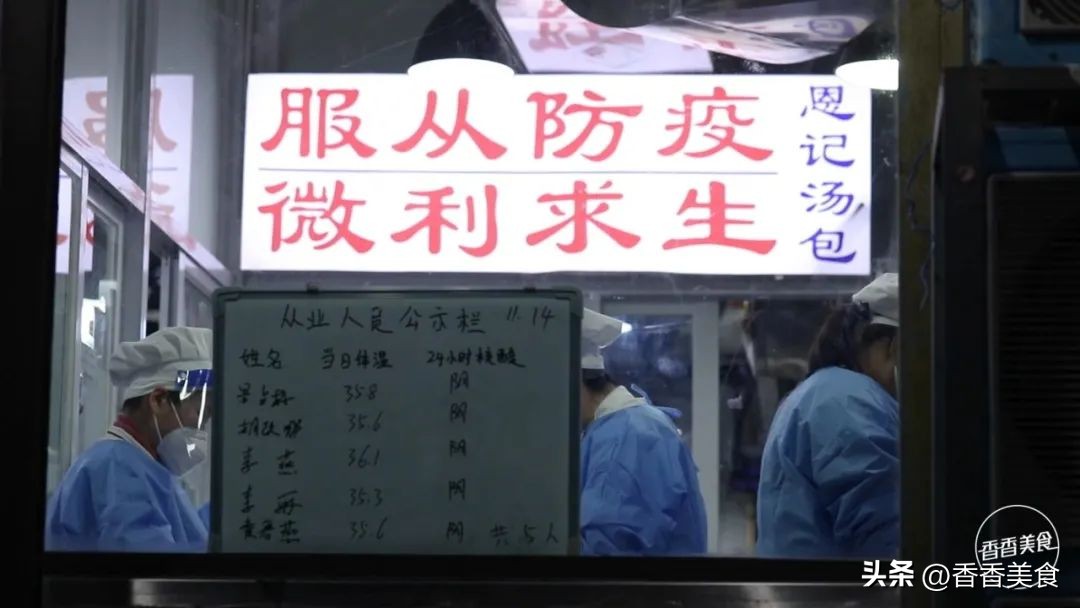 服从防疫
微利求生
恩记汤包
从业人员公示栏 11.14
姓名 当日体温 24小时核酸
35.8 阴
胡改娜 35.6 阴
李燕 36.1 阴
李丽 35.3 阴
黄春燕 35.6 阴 共5人
香香美食
头条 @香香美食